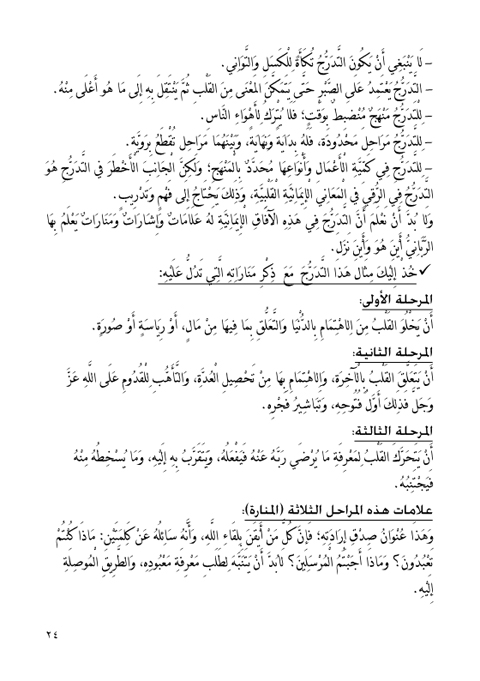 - لَا يَنْبَغِي أَنْ يَكُونَ التَّدَرُّجُ تُكَأَةً لِلْكَسَلِ وَالتَّوَانِي.
- التَّدَرُّجُ يَعْتَمِدُ عَلَى الصَّبْرِ حَتَّى يَتَمَكَّنَ الْمَعْنَى مِنَ القَلْبِ ثُمَّ يَنْتَقِلَ بِهِ إِلَى مَا هُوَ أَعْلَى مِنْهُ.
- لِلتَّدَرُّجِ مَنْهَجٌ مُنْضَبِطٌ بِوَقْتٍ؛ فَلَا يُتْرَكُ لِأَهْوَاءِ النَّاسِ.
- لِلتَّدَرُّجِ مَرَاحِلُ مَحْدُودَةٌ، فَلَهُ بِدَايَةٌ وَنِهَايَةٌ، وَبَيْنَهُمَا مَرَاحِلُ تُقْطَعُ بِرَوِيَّةٍ.
- لِلتَّدَرُّجِ فِي كَمِّيَّةِ الْأَعْمَالِ وَأَنْوَاعِهَا مُحَدَّدٌ بِالْمَنْهَجِ؛ وَلَكِنَّ الْجَانِبَ الْأَخْطَرَ فِي التَّدَرُّجِ هُوَ
التَّدَرُّجُ فِي الرُّقِيِّ فِي الْمَعَانِي الْإِيمَانِيَّةِ القَلْبِيَّةِ، وَذَلِكَ يَحْتَاجُ إِلَى فَهْمٍ وَتَدْرِيبٍ.
وَلَا بُدَّ أَنْ نَعْلَمَ أَنَّ التَّدَرُّجَ فِي هَذِهِ الْآفَاقِ الْإِيمَانِيَّةِ لَهُ عَلَامَاتٌ وَإِشَارَاتٌ وَمَنَارَاتٌ يَعْلَمُ بِهَا
الرَّبَّانِيُّ أَيْنَ هُوَ وَأَيْنَ نَزَلَ.
✓ خُذْ إِلَيْكَ مِثَالَ هَذَا التَّدَرُّجِ مَعَ ذِكْرِ مَنَارَاتِهِ الَّتِي تَدُلُّ عَلَيْهِ:
المرحلة الأولى:
أَنْ يَخْلُوَ القَلْبُ مِنَ الِاهْتِمَامِ بِالدُّنْيَا وَالتَّعَلُّقِ بِمَا فِيهَا مِنْ مَالٍ، أَوْ رِيَاسَةٍ أَوْ صُورَةٍ.
المرحلة الثانية:
أَنْ يَتَعَلَّقَ القَلْبُ بِالْآخِرَةِ، وَالِاهْتِمَامِ بِهَا مِنْ تَحْصِيلِ الْعُدَّةِ، وَالتَّأَهُّبِ لِلْقُدُومِ عَلَى اللَّهِ عَزَّ
وَجَلَّ فَذَلِكَ أَوَّلُ فُتُوحِهِ، وَتَبَاشِيرُ فَجْرِهِ.
المرحلة الثالثة:
أَنْ يَتَحَرَّكَ القَلْبُ لِمَعْرِفَةِ مَا يُرْضِي رَبَّهُ عَنْهُ فَيَفْعَلُهُ، وَيَتَقَرَّبُ بِهِ إِلَيْهِ، وَمَا يُسْخِطُهُ مِنْهُ
فَيَجْتَنِبُهُ.
علامات هذه المراحل الثلاثة (المنارة):
وَهَذَا عُنْوَانُ صِدْقِ إِرَادَتِهِ؛ فَإِنَّ كُلَّ مَنْ أَيْقَنَ بِلِقَاءِ اللَّهِ، وَأَنَّهُ سَائِلُهُ عَنْ كَلِمَتَيْنِ: مَاذَا كُنْتُمْ
تَعْبُدُونَ؟ وَمَاذَا أَجَبْتُمُ الْمُرْسَلِينَ؟ لَابُدَّ أَنْ يَتَنَبَّهَ لِطَلَبِ مَعْرِفَةِ مَعْبُودِهِ، وَالطَّرِيقِ الْمُوصِلَةِ
إِلَيْهِ.
٢٤